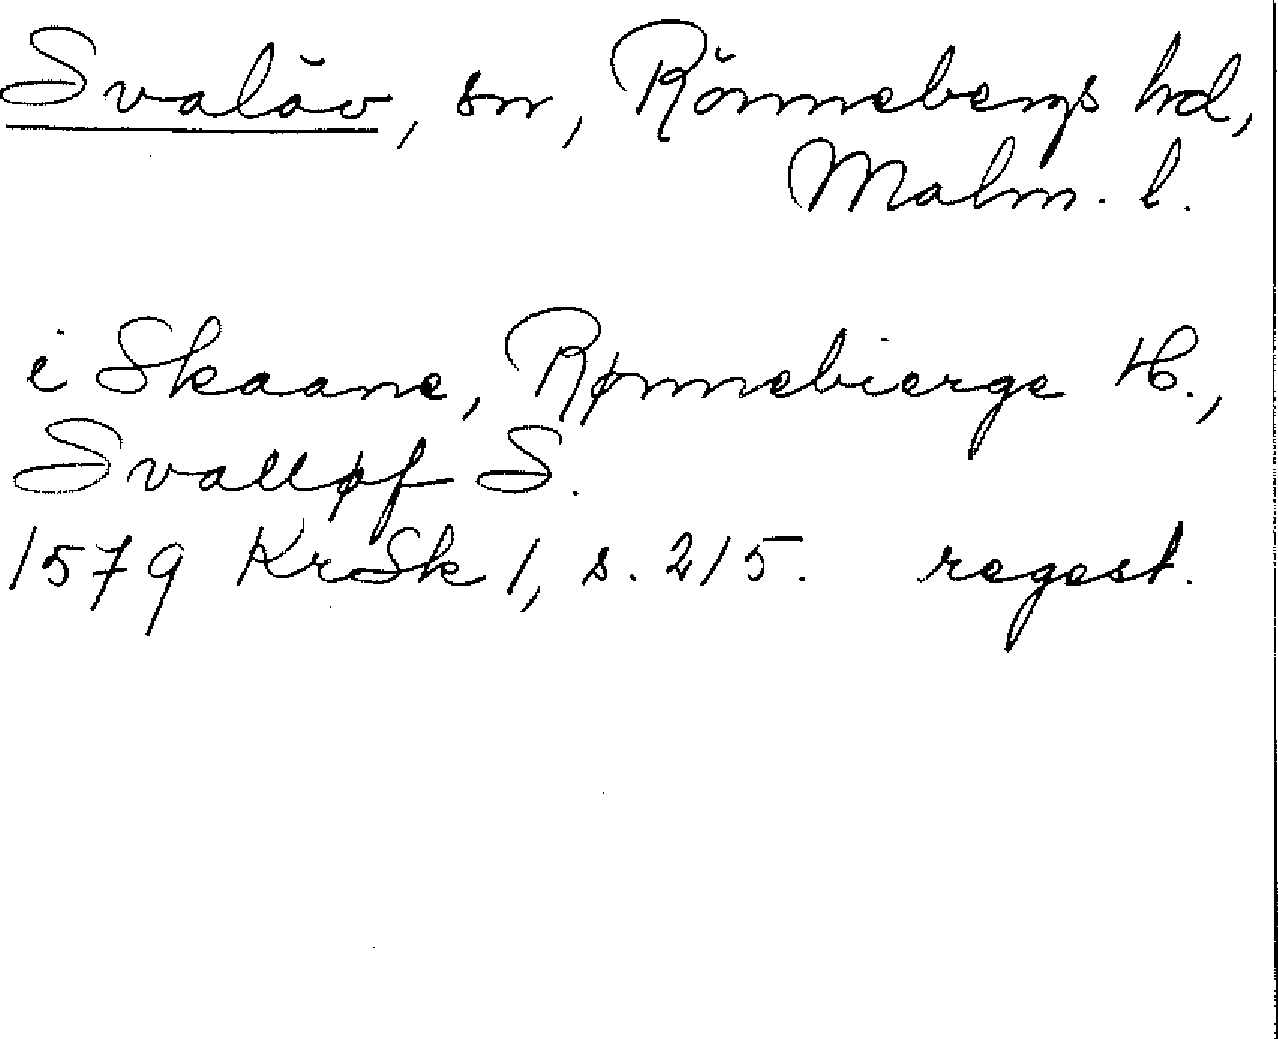 Svalöv, sn, Rönnebergs hd,
Malm. l.
i Skaane, Rønnebierge H.,
Svalløf S.
1579 KrSk 1, s. 215. regest.